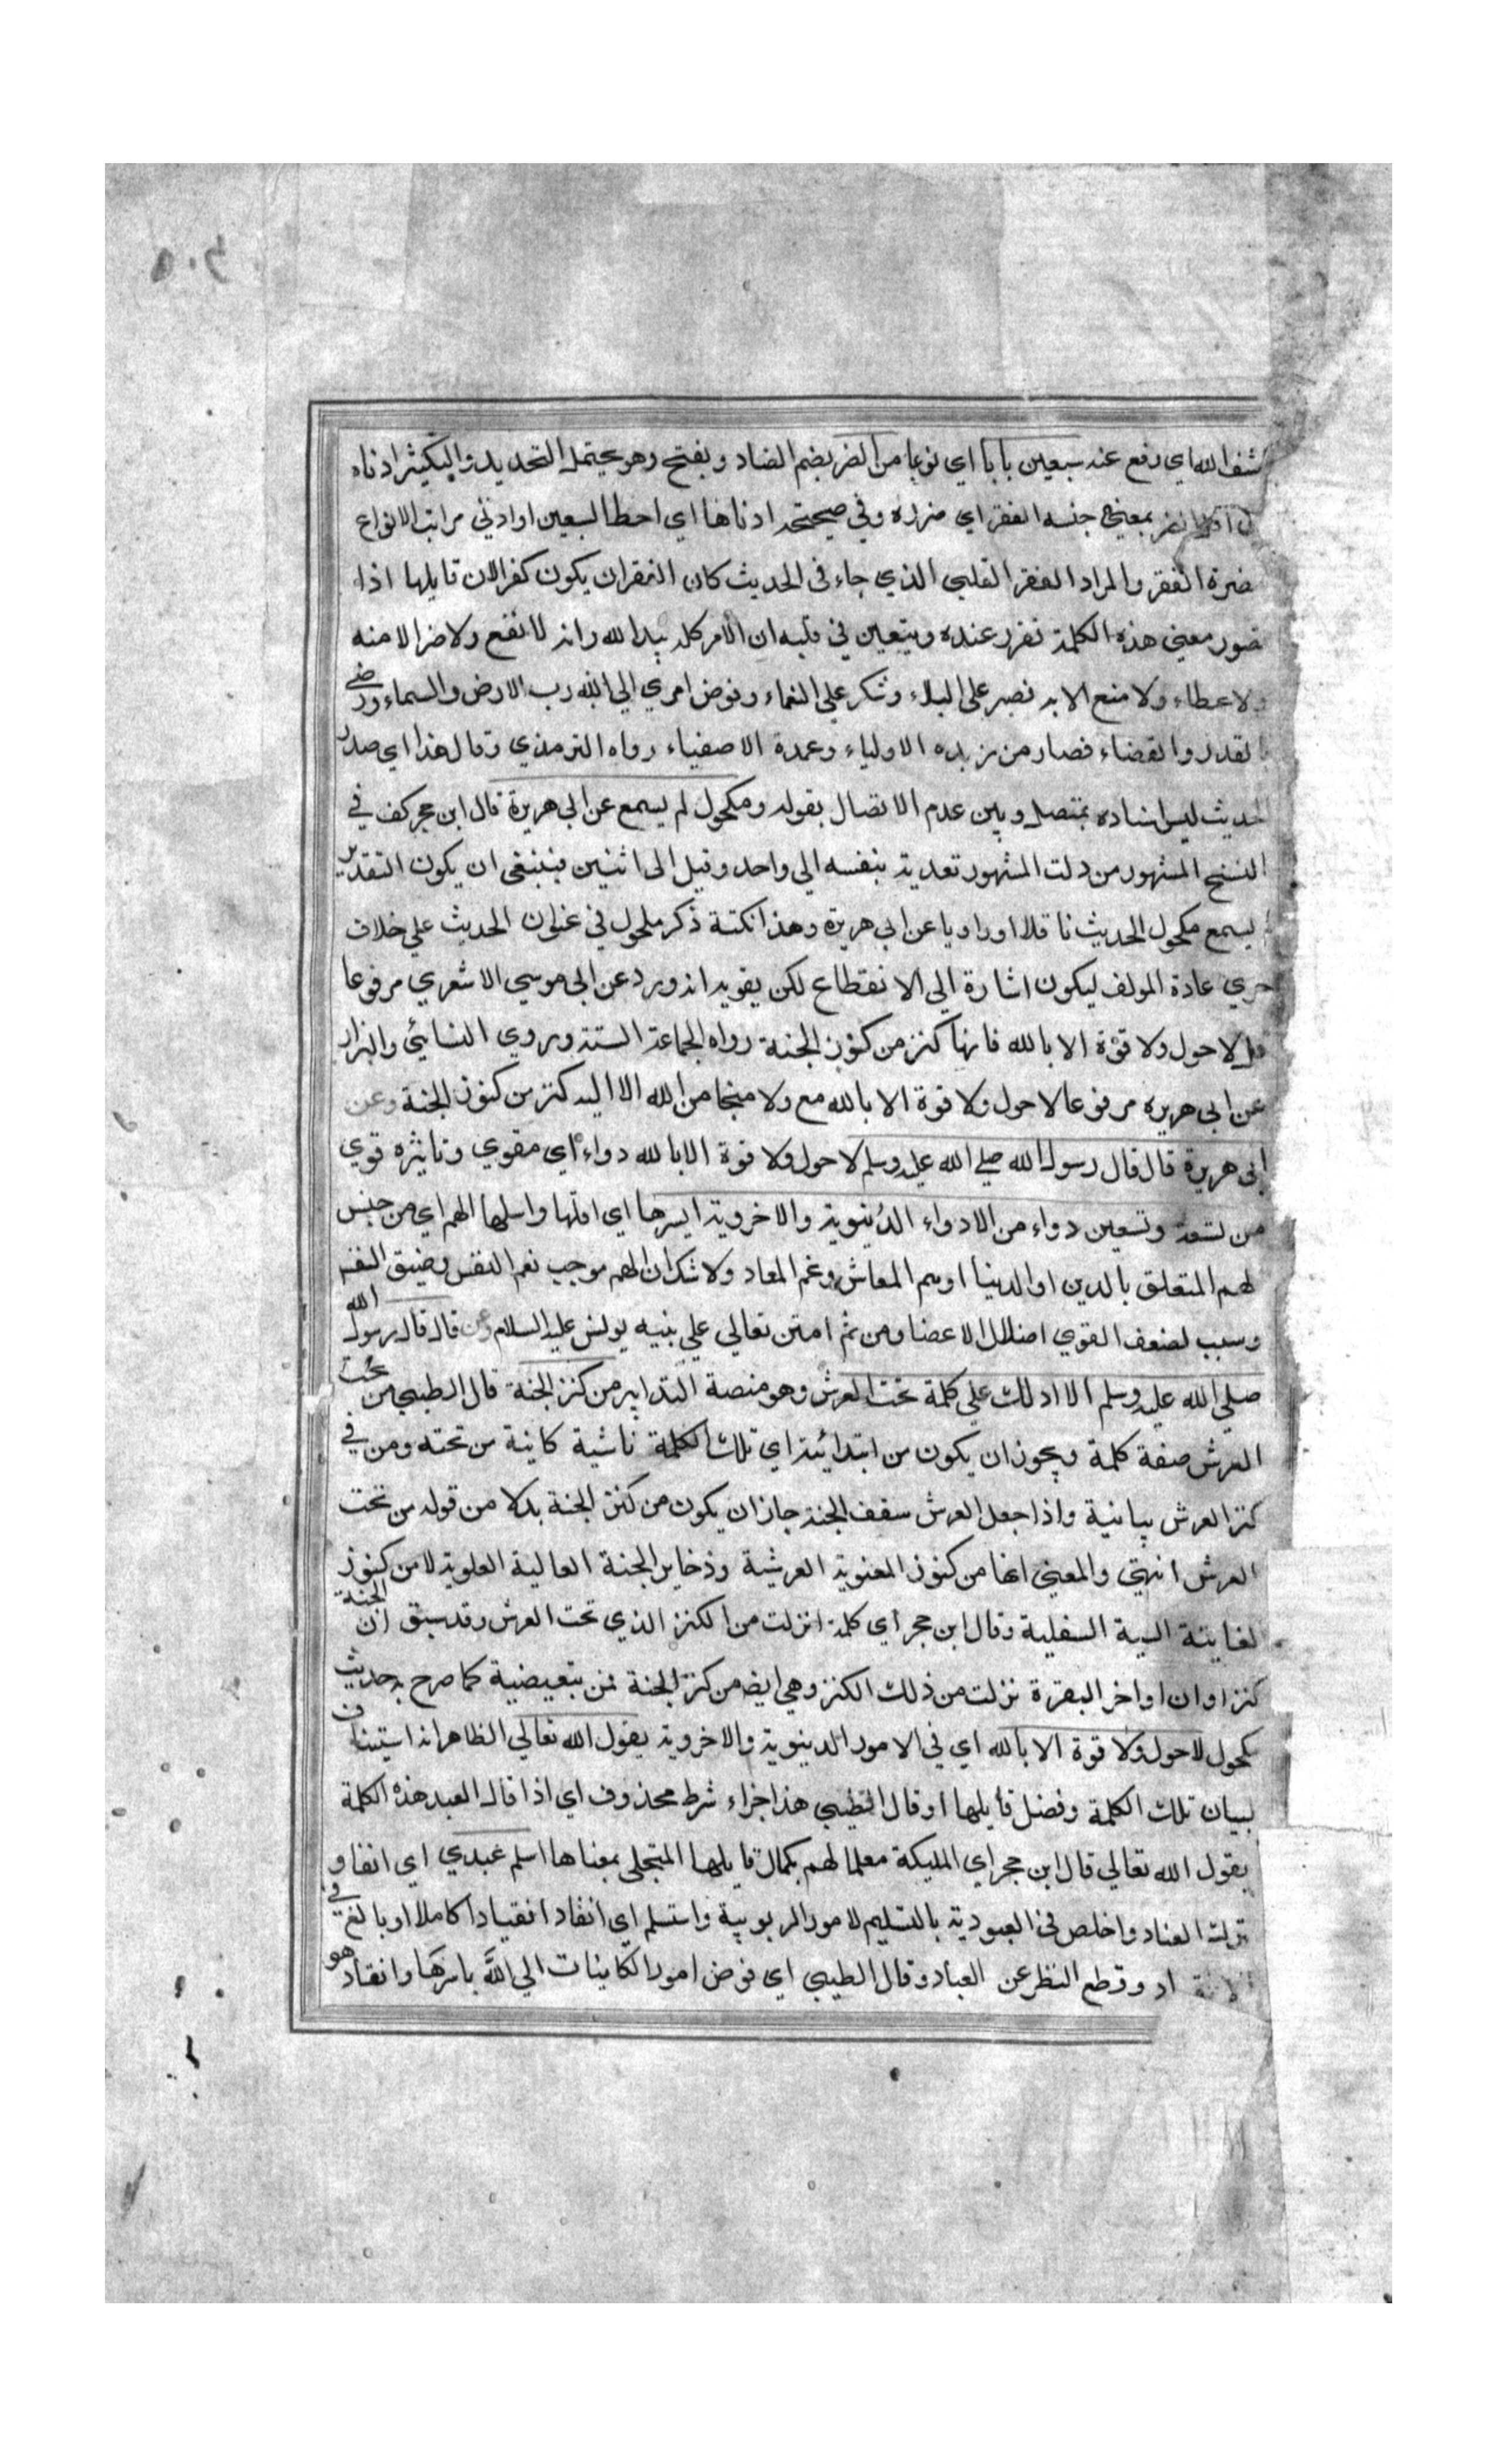 ٤٠٥
شف الله اي رفع عنه سبعين بابا اي نوعا من الضر بضم الضاد وبفتح وهو يحتمل التحديد والتكثير ادناه
بمعنى جنسه الفقر اي ضرره وفي صحيحة ادناها اي احط السبعين او ادنى مراتب الانواع
ضرة الفقر والمراد الفقر القلبي الذي جاء في الحديث كان الفقر ان يكون كفرا لان قايلها اذا
تصور معنى هذه الكلمة تقرر عنده ويتعين في قلبه ان الامر كله بيد الله وانه لا نفع ولا ضر الا منه
ولا عطاء ولا منع الا به فصبر على البلاء وشكر على النعماء وفوض امري الى الله رب الارض والسماء ورضي
بالقدر والقضاء فصار من زبده الاولياء وعمدة الاصفياء رواه الترمذي وقال هذا اي صدر
الحديث ليس اسناده بمتصل وبين عدم الاتصال بقوله ومكحول لم يسمع عن ابي هريرة قال ابن حجر كف في
النسخ المشهور من دلت المشهور تعديته بنفسه الى واحد وقيل الى اثنين فينبغي ان يكون التقدير
يسمع مكحول الحديث ناقلا او راويا عن ابي هريرة وهذا نكتة ذكر ملحول في عنوان الحديث على خلاف
جري عادة المولف ليكون اشارة الى الانقطاع لكن يقويه انه ورد عن ابي موسي الاشعري مرفوعا
قل لا حول ولا قوة الا بالله فانها كنز من كنوز الجنة رواه الجماعة الستة وروي النسائي والبزار
عن ابي هريره مرفوعا لا حول ولا قوة الا بالله مع ولا منجا من الله الا اليه كنز من كنوز الجنة وعن
ابي هريرة قال قال رسول الله صلى الله عليه وسلم لا حول ولا قوة الا بالله دواء اي مقوي وتاثيره قوي
من تسعة وتسعين دواء من الادواء الدنيوية والاخروية ايسرها اي اقلها واسلها الهم اي من جنس
لهم المتعلق بالدين او الدنيا او هم المعاش وغم المعاد ولا شك ان الهم موجب لغم النفس وضيق النفس
وسبب لضعف القوي اضلال الاعضا ومن ثم امتن تعالي على نبيه يونس عليه السلام وعن قال قال رسول الله
صلى الله عليه وسلم الا ادلك على كلمة تحت العرش وهو منصة التدابير من كنز الجنة قال الطيبي من تحت
العرش صفة كلمة ويجوز ان يكون من ابتدائية اي تلك الكلمة ناشية كاينة من تحته ومن في
كنز العرش بيانية واذا جعل العرش سقف الجنة جاز ان يكون من كنز الجنة بدلا من قوله من تحت
العرش انتهى والمعنى انها من كنوز المعنوية العرشية وذخاير الجنة العالية العلوية لا من كنوز
لفاينة السية السفلية وقال ابن حجر اي كلمة انزلت من الكنز الذي تحت العرش وقد سبق ان الجنة
كنز او ان اواخر البقرة نزلت من ذلك الكنز وهي ايضا من كنز الجنة فمن تبعيضية كما صرح به حديث
كحول لا حول ولا قوة الا بالله اي في الامور الدنيوية والاخروية يقول الله تعالي الظاهر انه استيناف
لبيان تلك الكلمة وفضل قايلها او قال الطيبي هذا جزاء شرط محذوف اي اذا قال العبد هذه الكلمة
يقول الله تعالي قال ابن حجر اي المليكة معلما لهم بكمال قايلها المتجلى بمعناها اسلم عبدي اي انقاد
ترك العناد واخلص في العبودية بالتسليم لامور الربوبية واستسلم اي انقاد انقيادا كاملا او بالغ في
اد وقطع النظر عن العباد وقال الطيبي اي فوض امور الكاينات الى الله باسرها وانقاد هو